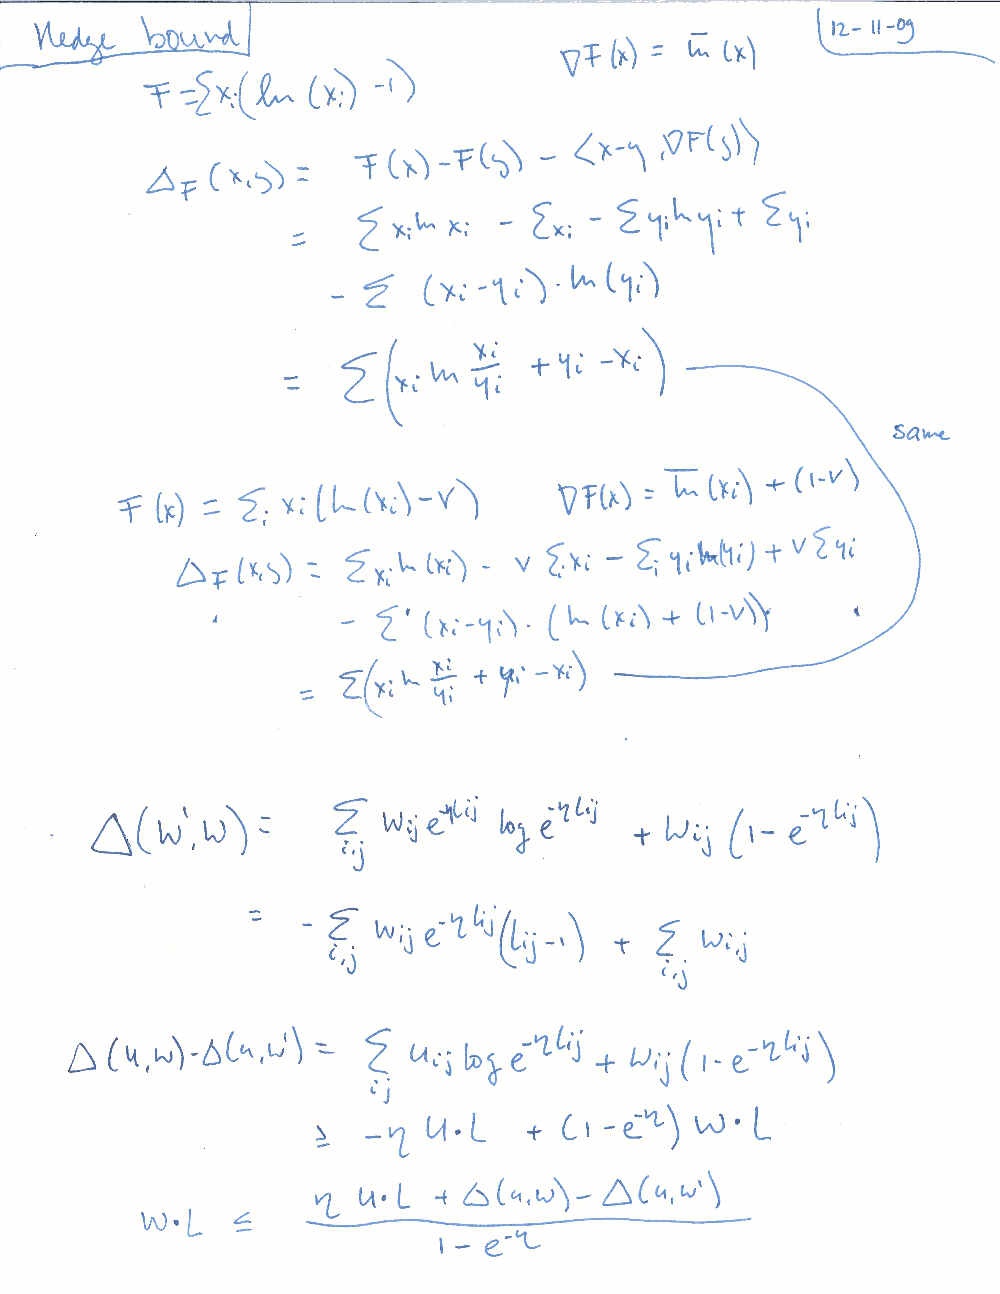 Hedge bound
12-11-09
F = Σ x_i (ln (x_i) - 1)
∇F(x) = l̅n̅ (x)
Δ_F (x,y) = F(x) - F(y) - <x-y, ∇F(y)>
= Σ x_i ln x_i - Σ x_i - Σ y_i ln y_i + Σ y_i
- Σ (x_i - y_i) · ln (y_i)
= Σ (x_i ln x_i/y_i + y_i - x_i)
same
F(x) = Σ_i x_i (ln(x_i) - v)
∇F(x) = l̅n̅ (x_i) + (1-v)
Δ_F(x,y) = Σ x_i ln (x_i) - v Σ_i x_i - Σ_i y_i ln(y_i) + v Σ y_i
- Σ (x_i - y_i) · (ln (x_i) + (1-v))
= Σ (x_i ln x_i/y_i + y_i - x_i)
Δ(w', w) = Σ_{i,j} w_ij e^{-η L_ij} log e^{-η L_ij} + w_ij (1 - e^{-η L_ij})
= - Σ_{i,j} w_ij e^{-η L_ij} (L_ij - 1) + Σ_{i,j} w_ij
Δ(u,w) - Δ(u,w') = Σ_{ij} u_ij log e^{-η L_ij} + w_ij (1 - e^{-η L_ij})
≥ -η U·L + (1 - e^{-η}) W·L
W·L ≤ (η U·L + Δ(u,w) - Δ(u,w')) / (1 - e^{-η})